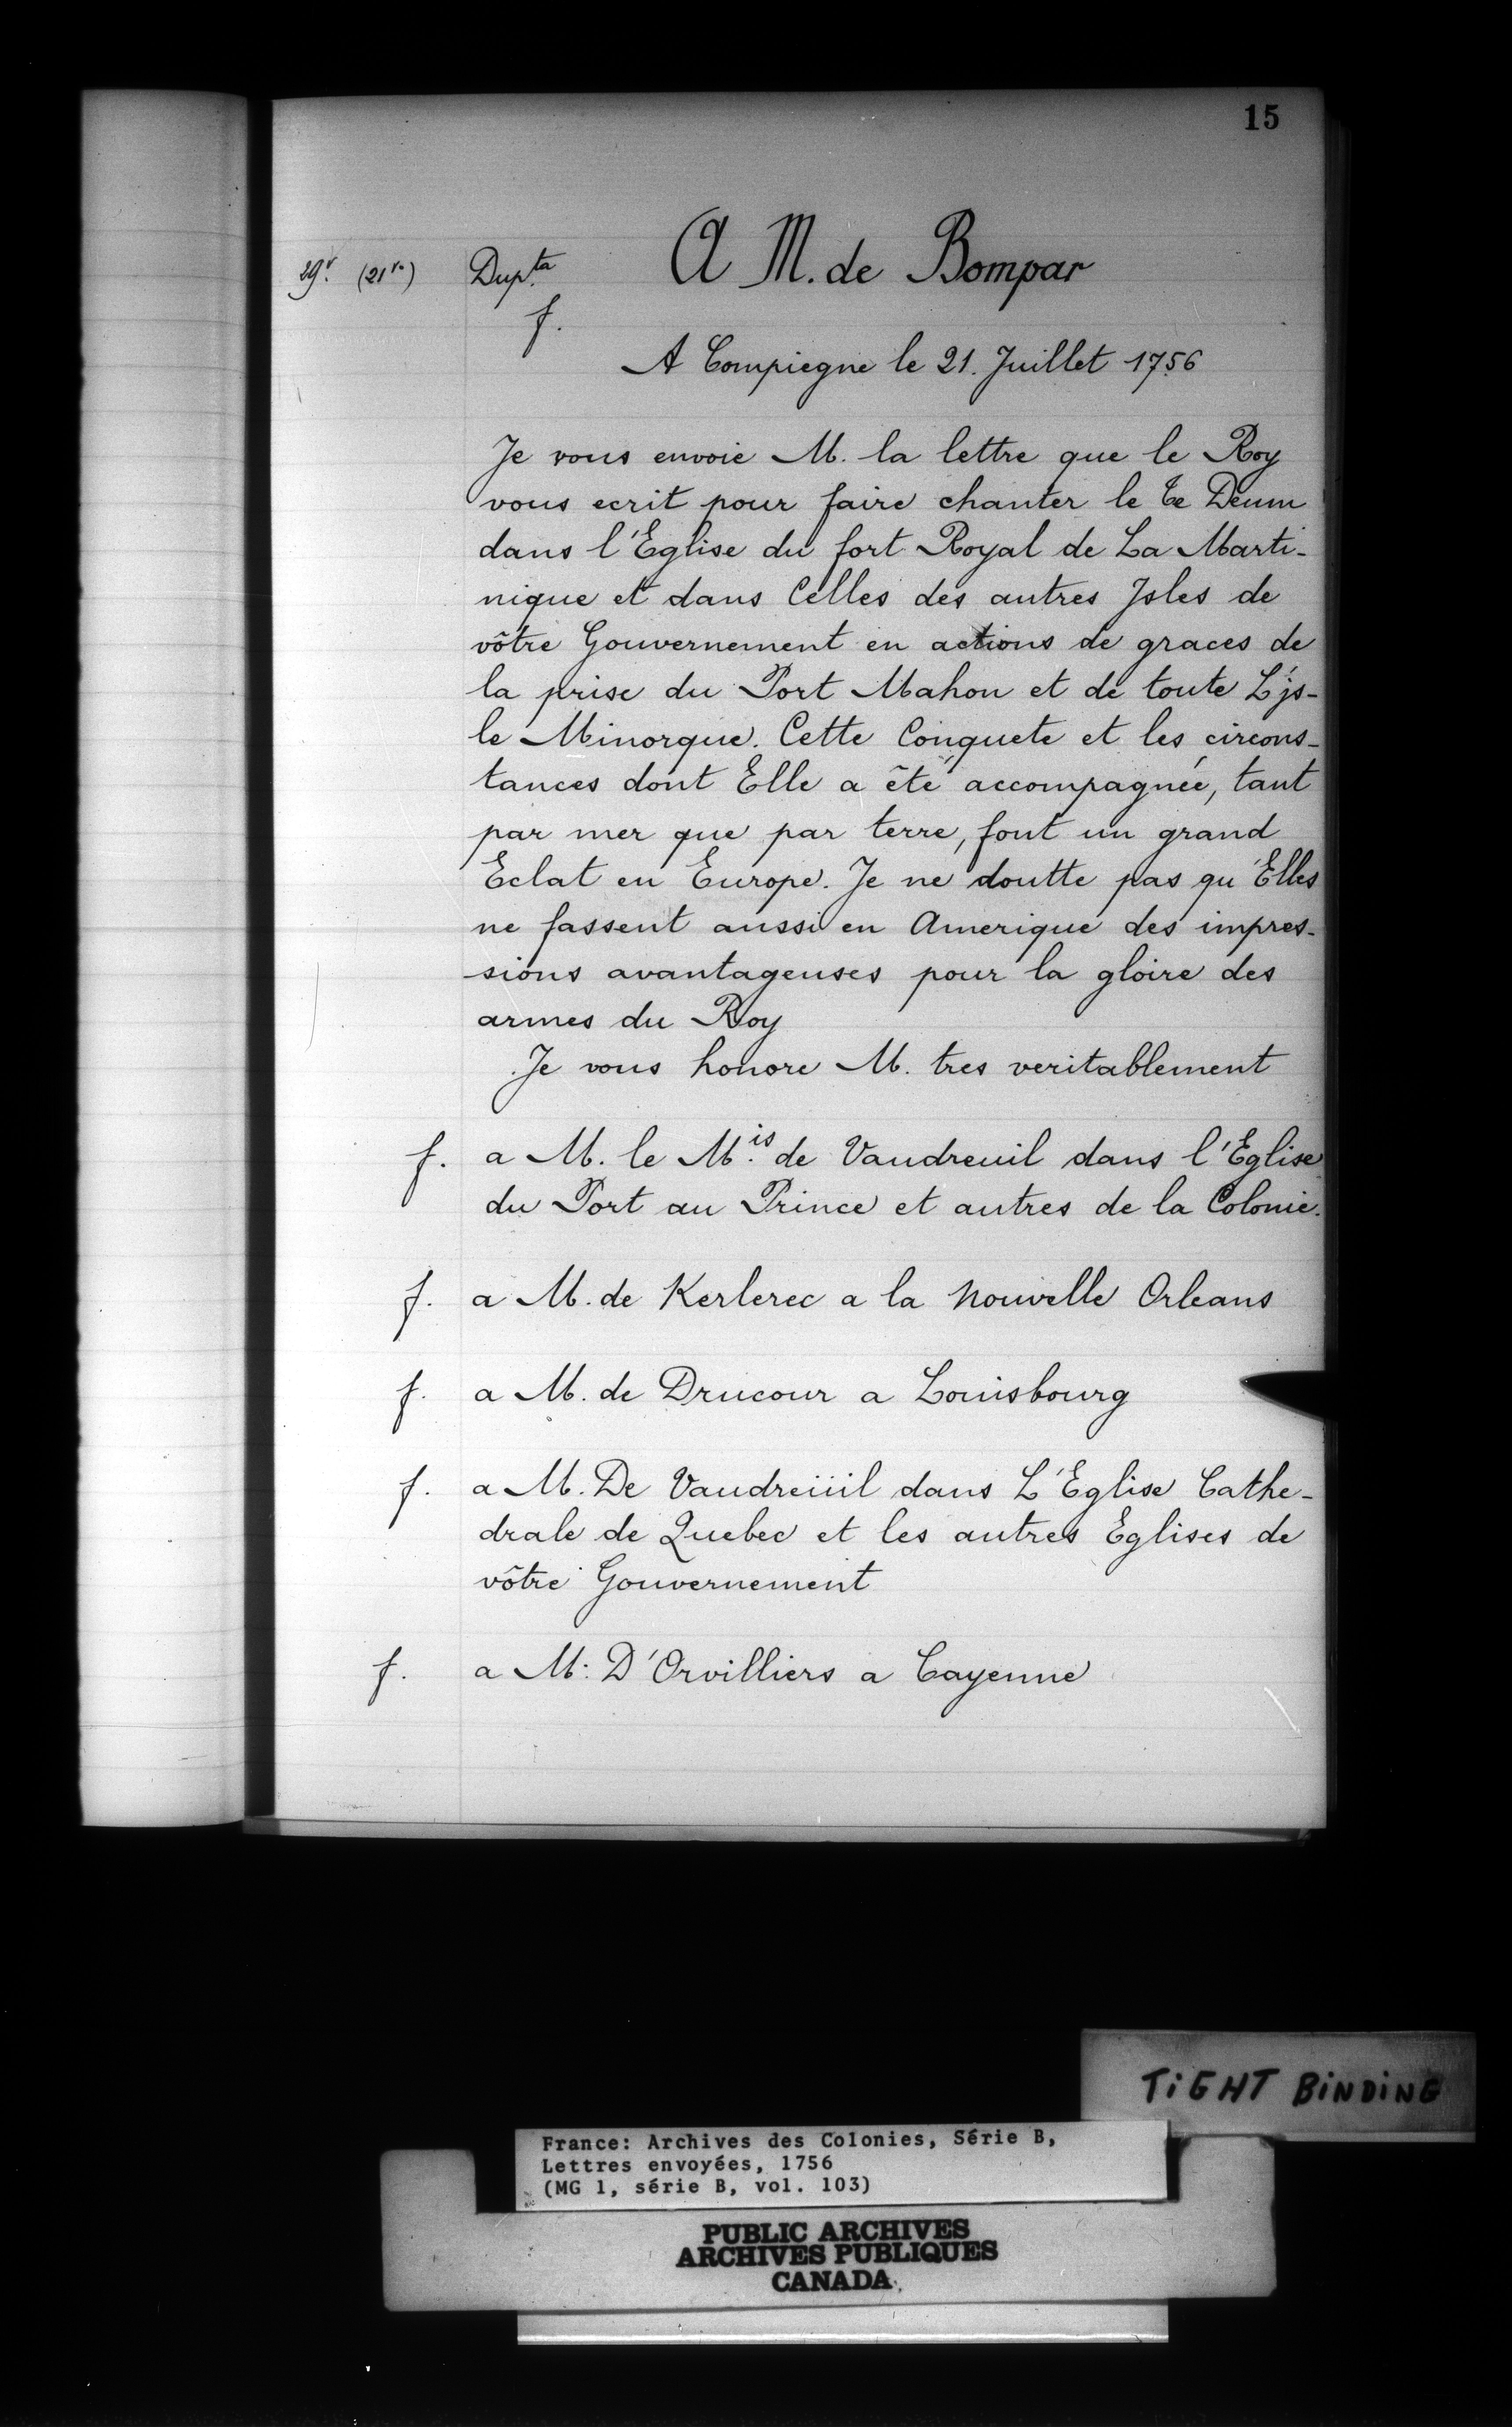 15
29.v (21 ro) Dup.ta A M. de Bompar
f.
A Compiegne le 21. Juillet 1756
Je vous envoie M. la lettre que le Roy
vous ecrit pour faire chanter le Te Deum
dans l'Eglise du fort Royal de La Marti-
nique et dans Celles des autres Isles de
vôtre Gouvernement en actions de graces de
la prise du Port Mahon et de toute L'js-
le Minorque. Cette Conquete et les circons-
tances dont Elle a êté accompagnée, tant
par mer que par terre, font un grand
Eclat en Europe. Je ne doutte pas qu'Elles
ne fassent aussi en Amerique des impres-
sions avantageuses pour la gloire des
armes du Roy
Je vous honore M. tres veritablement
f. a M. le M.is de Vaudreuil dans l'Eglise
du Port au Prince et autres de la Colonie.
f. a M. de Kerlerec a la Nouvelle Orleans
f. a M. de Drucour a Louisbourg
f. a M. De Vaudreüil dans L'Eglise Cathe-
drale de Quebec et les autres Eglises de
vôtre Gouvernement
f. a M. D'Orvilliers a Cayenne
TIGHT BINDING
France: Archives des Colonies, Série B,
Lettres envoyées, 1756
(MG 1, série B, vol. 103)
PUBLIC ARCHIVES
ARCHIVES PUBLIQUES
CANADA